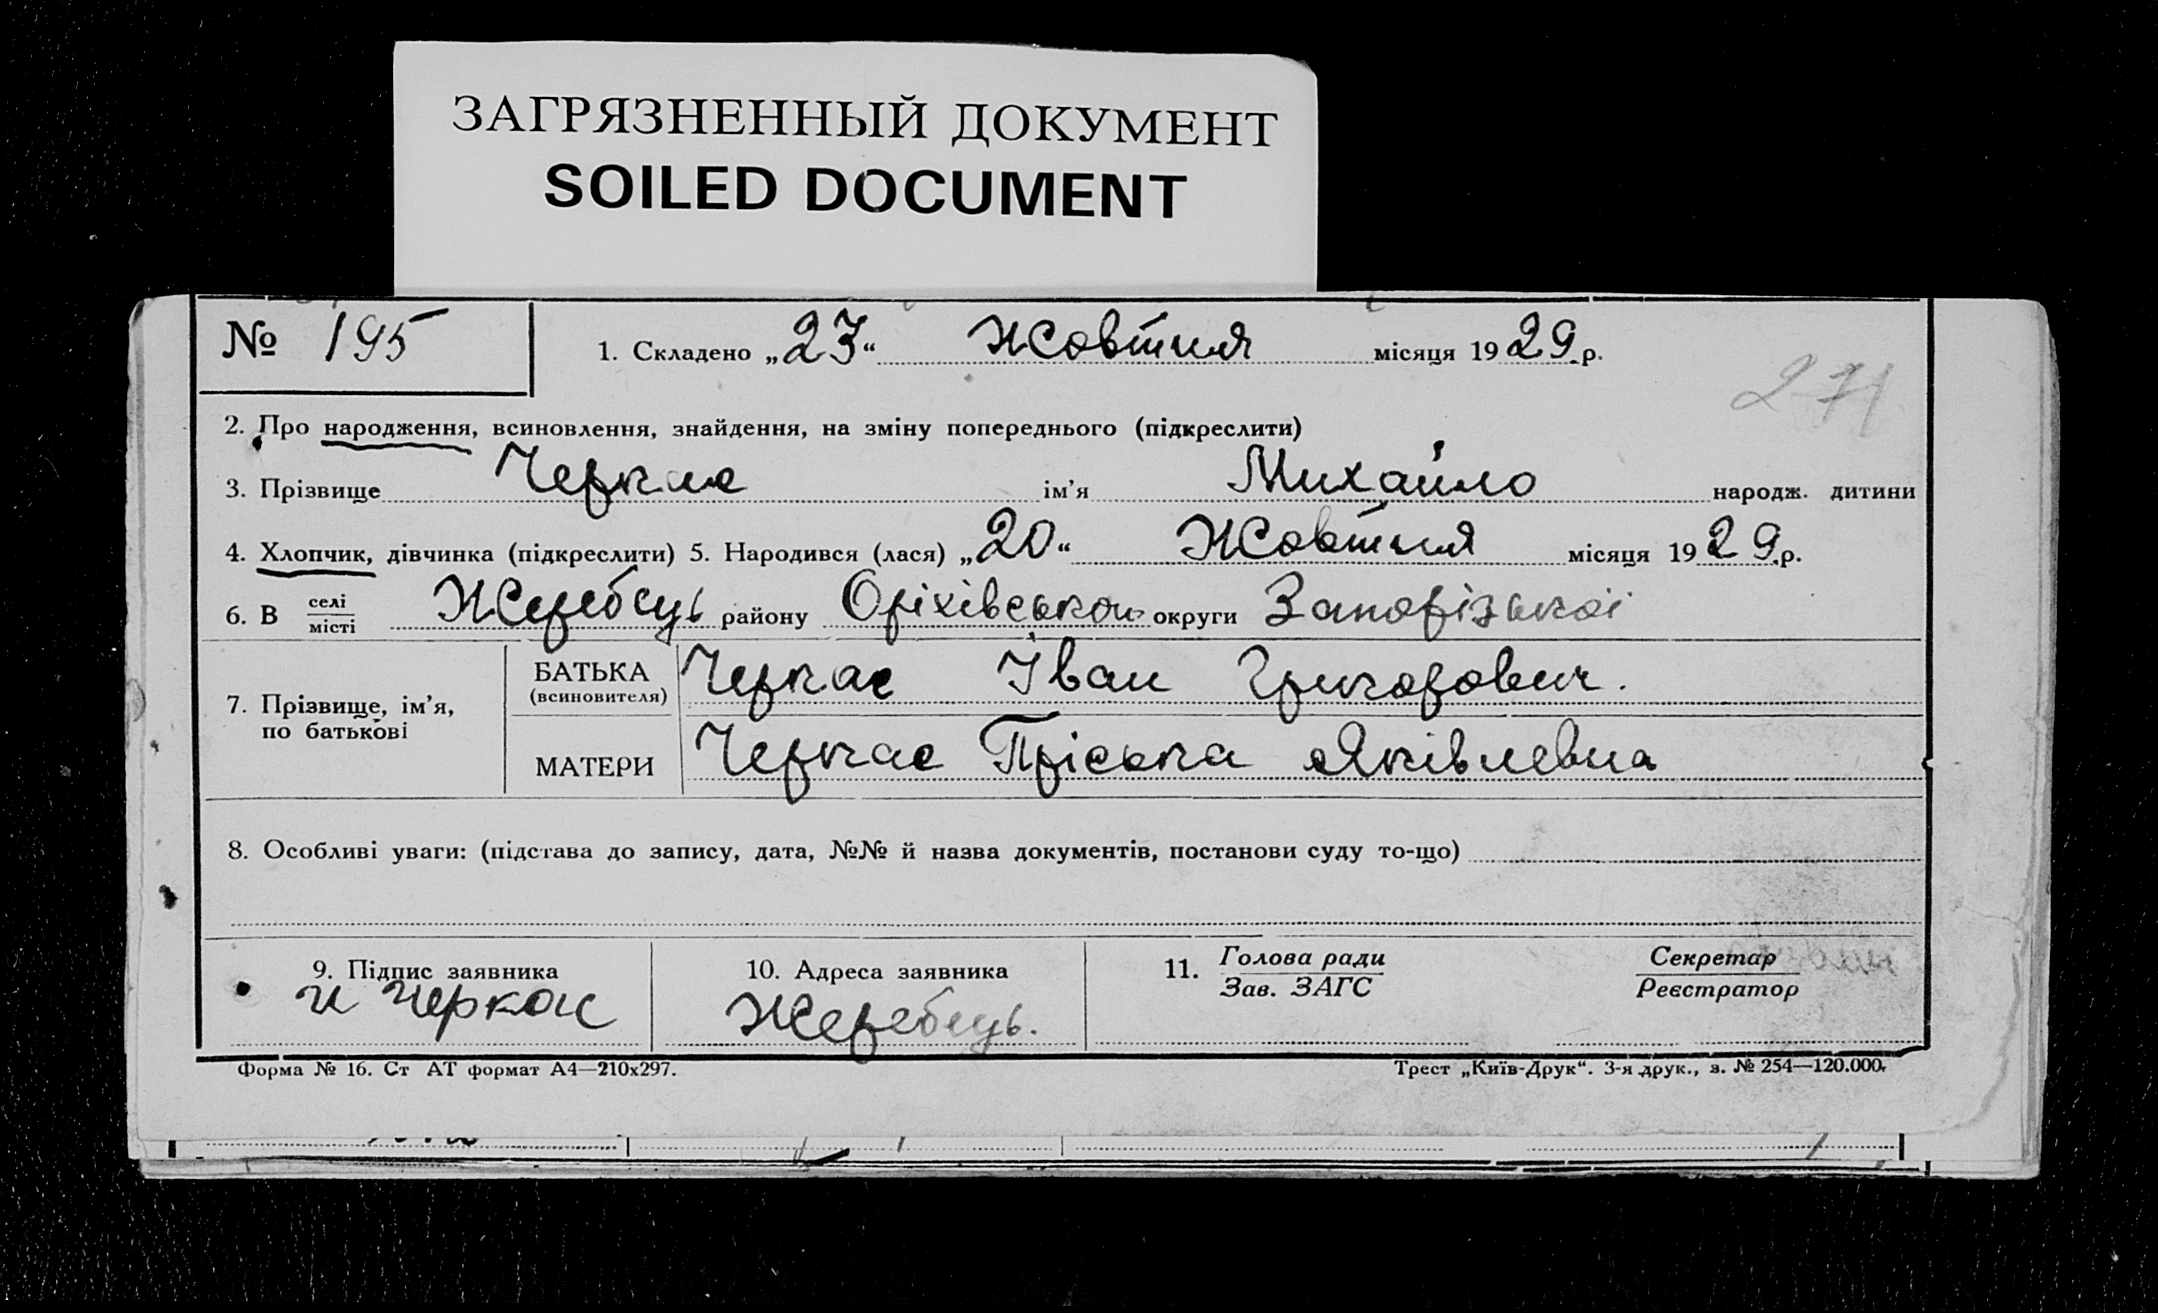 ЗАГРЯЗНЕННЫЙ ДОКУМЕНТ
SOILED DOCUMENT
№ 195
1. Складено „23“ Жовтня місяця 1929 р.
271
2. Про народження, всиновлення, знайдення, на зміну попереднього (підкреслити)
3. Прізвище Черкас ім'я Михайло народж. дитини
4. Хлопчик, дівчинка (підкреслити) 5. Народився (лася) „20“ Жовтня місяця 1929 р.
6. В селі місті Жеребець району Оріхівської округи Запорізької
7. Прізвище, ім'я, по батькові
БАТЬКА (всиновителя) Черкас Іван Григорович.
МАТЕРИ Черкас Пріська Яківлевна
8. Особливі уваги: (підстава до запису, дата, №№ й назва документів, постанови суду то-що)
9. Підпис заявника
и Черкас
10. Адреса заявника
Жеребець.
11. Голова ради Зав. ЗАГС
Секретар Реєстратор
Форма № 16. Ст АТ формат А4—210х297.
Трест „Київ-Друк“. 3-я друк., з. № 254—120.000.